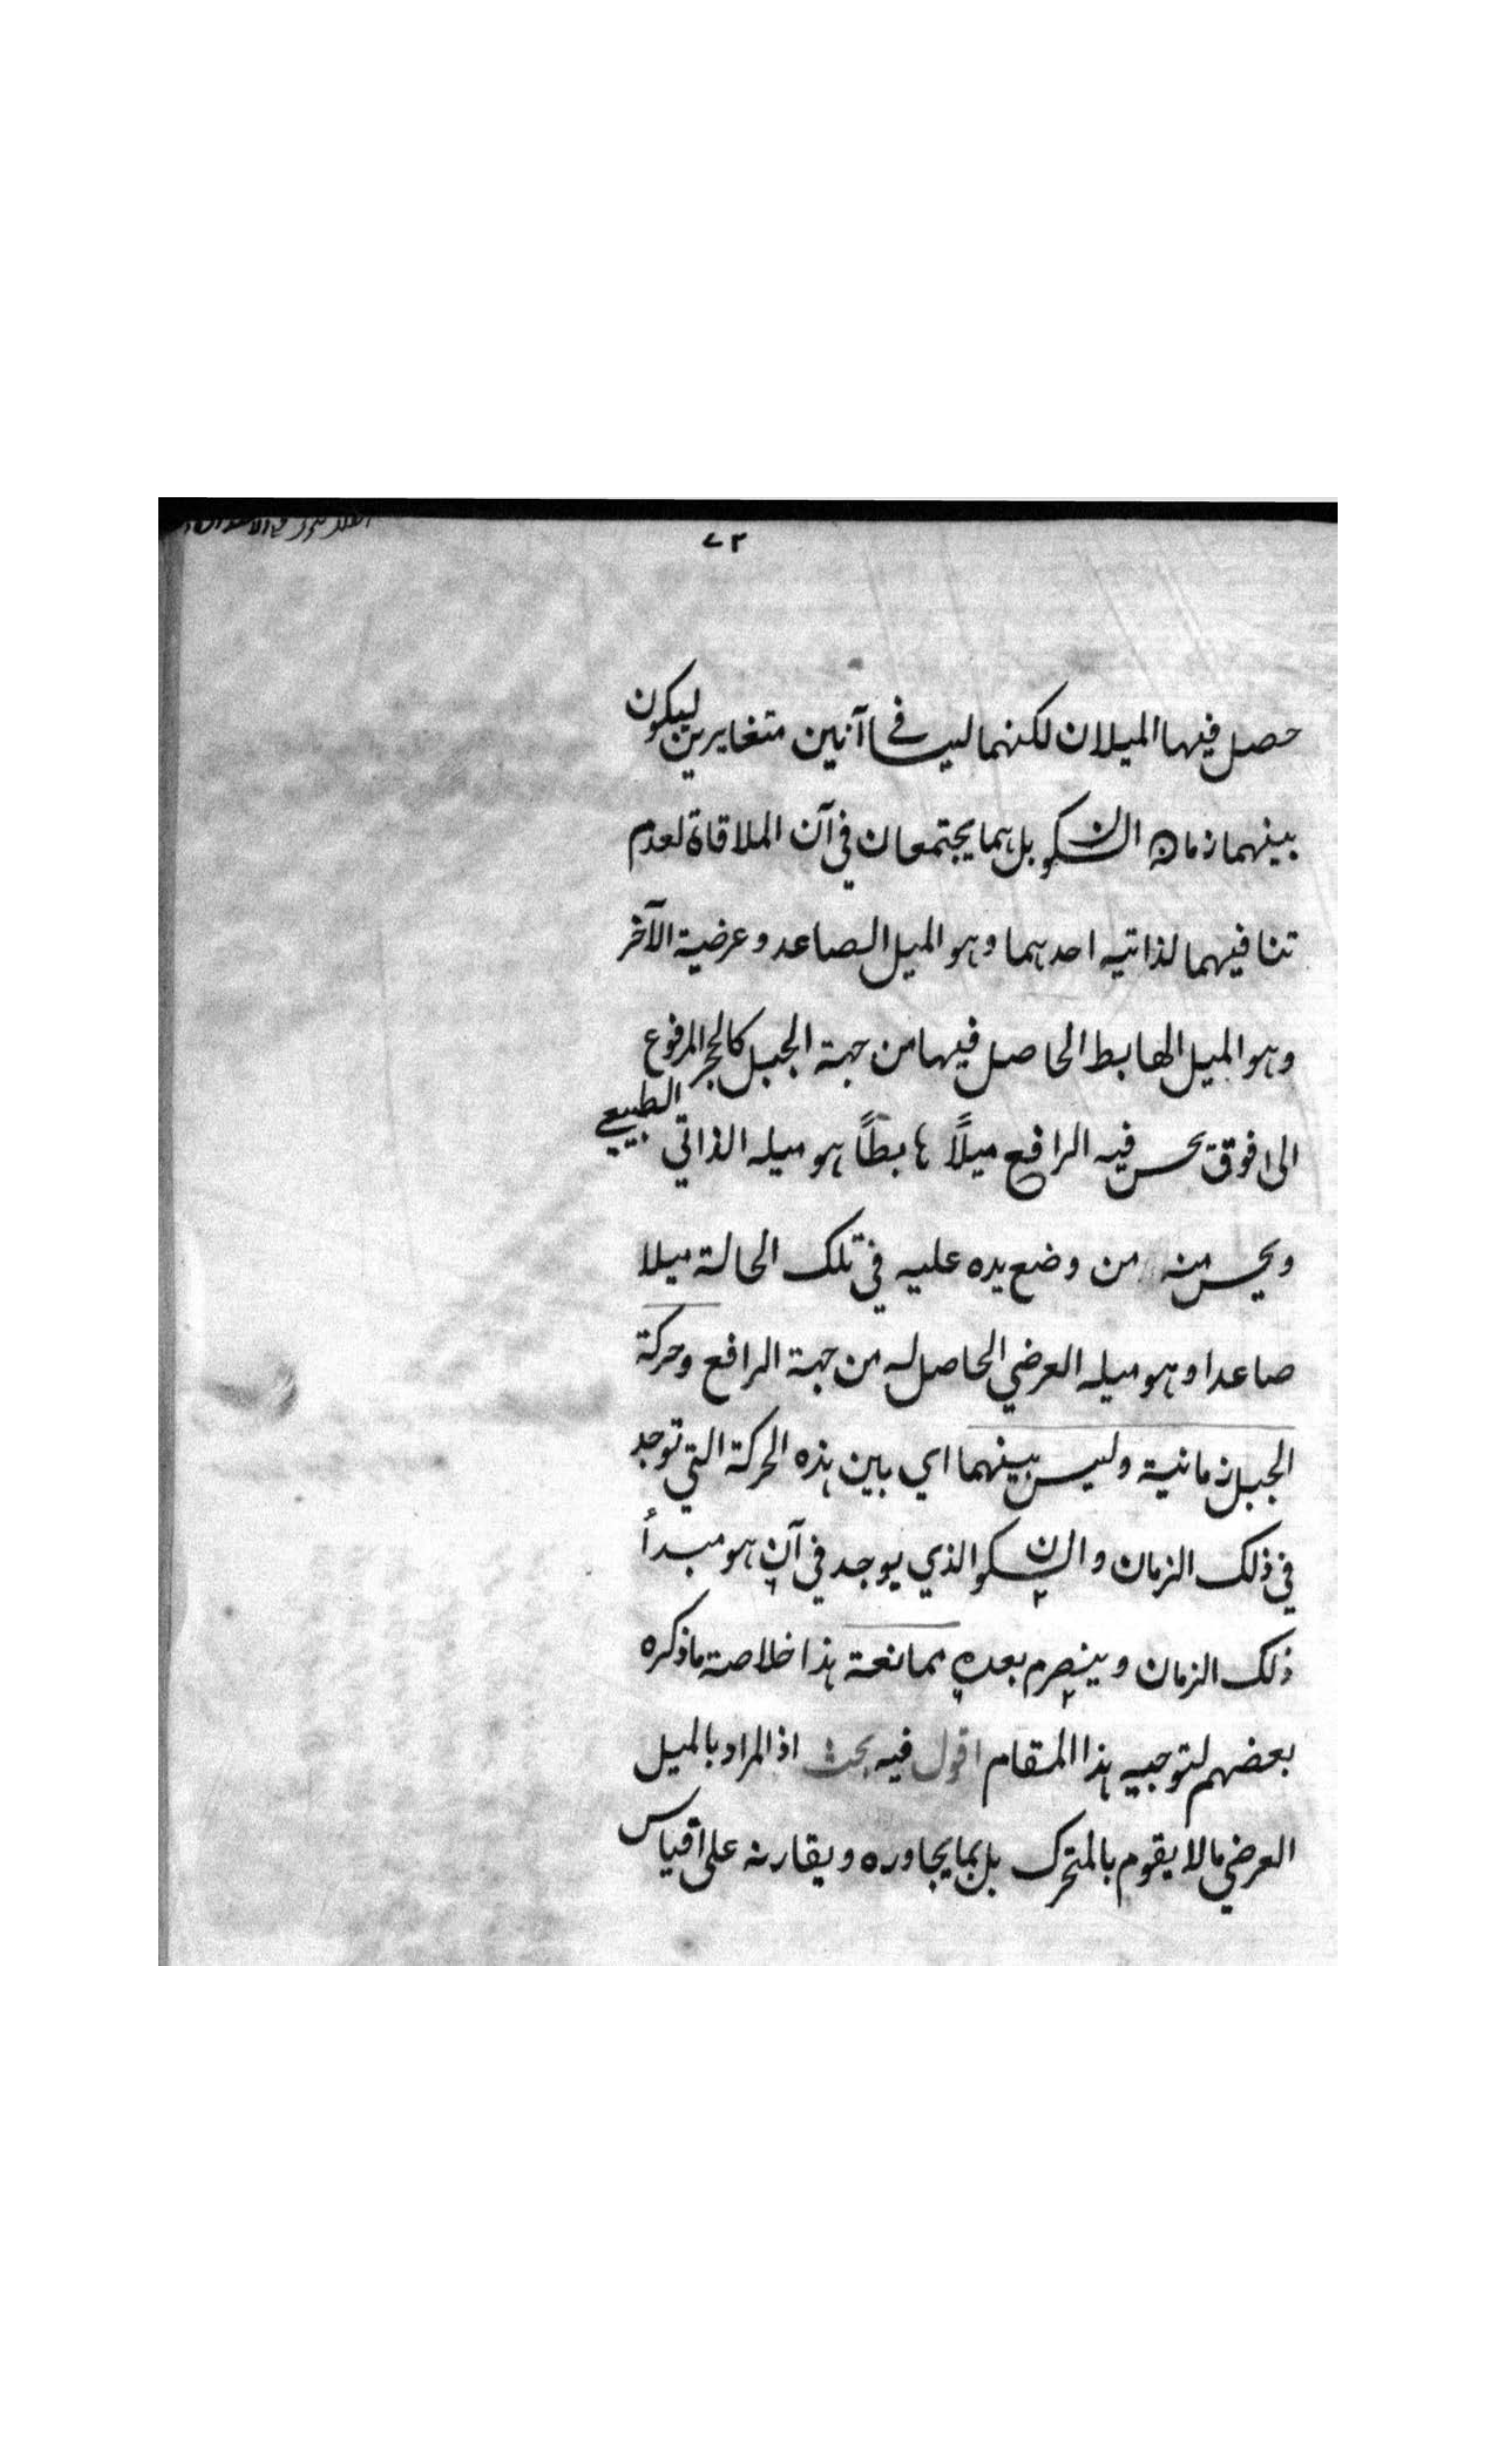 ٧٢
حصل فيها الميلان لكنهما ليسا في آنين متغايرين ليكون
بينهما زمان السكون بل هما يجتمعان في آن الملاقاة لعدم
تنافيهما لذاتيه احدهما وهو الميل الصاعد وعرضية الآخر
وهو الميل الهابط الحاصل فيها من جهة الجبل كالحجر المرفوع
الى فوق يحس فيه الرافع ميلاً هابطاً هو ميله الذاتي الطبيعي
ويحس منه من وضع يده عليه في تلك الحالة ميلا
صاعدا وهو ميله العرضي الحاصل له من جهة الرافع وحركة
الجبل زمانية وليس بينهما اي بين هذه الحركة التي توجد
في ذلك الزمان والسكون الذي يوجد في آن هو مبدأ
ذلك الزمان وينصرم بعده ممانعة هذا خلاصة ما ذكره
بعضهم لتوجيه هذا المقام اقول فيه بحث اذ المراد بالميل
العرضي ما لا يقوم بالمتحرك بل بما يجاوره ويقارنه على قياس